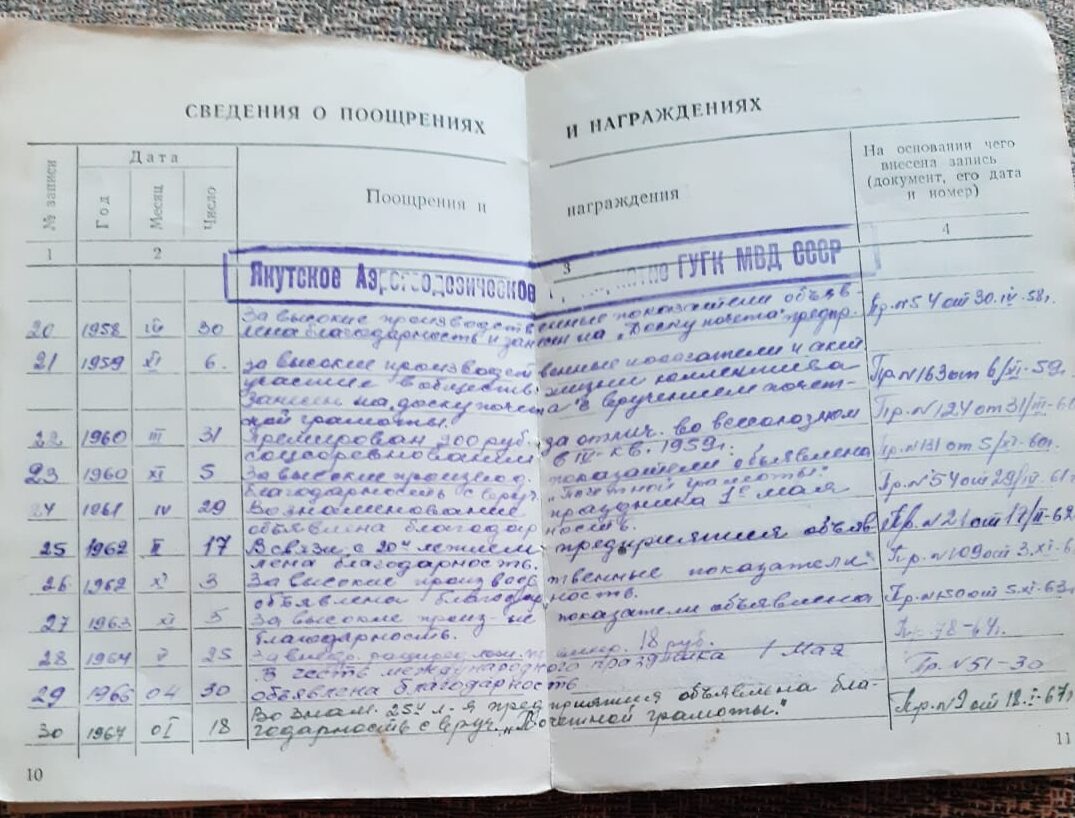 СВЕДЕНИЯ О ПООЩРЕНИЯХ И НАГРАЖДЕНИЯХ
№ записи
Дата
Год
Месяц
Число
Поощрения и награждения
На основании чего
внесена запись
(документ, его дата
и номер)
1 2 3 4
Якутское Аэрогеодезическое ГУГК МВД СССР
20 1958 IV 30 За высокие производственные показатели объяв-
лена благодарность и занесен на „Доску почета" предпр. Пр.№54 от 30.IV-58г.
21 1959 XI 6. За высокие производственные показатели и
участие в обществ. жизни коллектива Пр.№163 от 6/XI-59г.
занесен на „доску почета" с вручением почет-
ной грамоты. Пр.№124 от 31/III-
22 1960 III 31 Премирован 200 руб. за отлич. во всесоюзном
соцсоревновании в IV-кв. 1959г. Пр.№131 от 5/XI-60г.
23 1960 XI 5 За высокие производ. показатели объявлена
благодарность с вруч. „Почетной грамоты" Пр.№54 от 29/IV-61г
24 1961 IV 29 В ознаменование праздника 1е мая
объявлена благодарность.
25 1962 II 17 В связи с 20и летием предприятия объяв-
лена благодарность. Пр.№21 от 17/II-62
26 1962 XI 3 За высокие производственные показатели
объявлена благодарность. Пр.№109 от 3.XI-6
27 1963 XI 5 За высокие произ-ые показатели объявлена
благодарность. Пр.№150 от 5.XI-63г
28 1964 V 25 За внедр. 18 руб. 78-64г.
В честь международного праздника 1 Мая
29 1966 04 30 объявлена благодарность Пр.№51-30
30 1967 01 18 В ознам. 25и л-я предприятия объявлена бла-
годарность с вруч. „Почетной грамоты." Пр.№9 от 18.I-67г
10 11